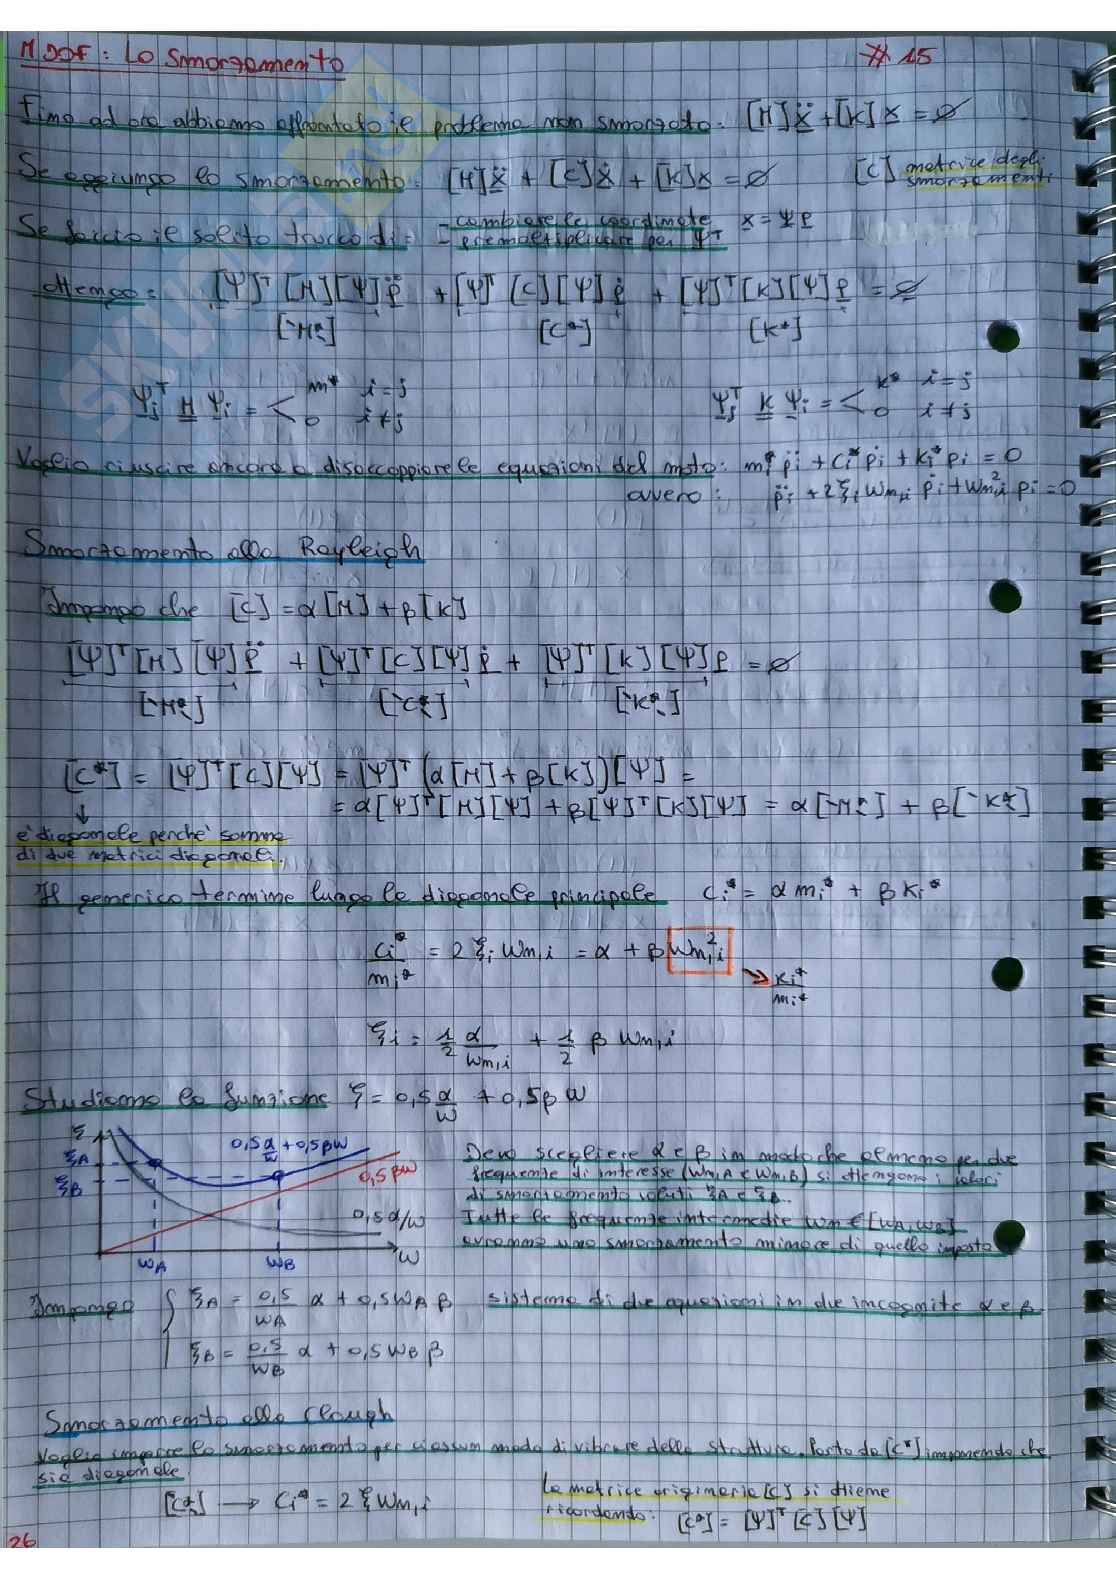 MDOF: Lo Smorzamento # 15
Fino ad ora abbiamo affrontato il problema non smorzato: [M]ẍ + [K]x = ∅
Se aggiungo lo smorzamento: [M]ẍ + [C]ẋ + [K]x = ∅ [C] matrice degli smorzamenti
Se faccio il solito trucco di: - cambiare le coordinate x = Ψp
- premoltiplicare per Ψᵀ
ottengo: [Ψ]ᵀ[M][Ψ]p̈ + [Ψ]ᵀ[C][Ψ]ṗ + [Ψ]ᵀ[K][Ψ]p = ∅
[`M*.] [C*] [K*]
Ψjᵀ M Ψi = < m* i=j Ψjᵀ K Ψi = < k* i=j
0 i≠j 0 i≠j
Voglio riuscire ancora a disaccoppiare le equazioni del moto: mi* p̈i + ci* ṗi + ki* pi = 0
ovvero: p̈i + 2ξi ωn,i ṗi + ωn,i² pi = 0
Smorzamento alla Rayleigh
Impongo che [C] = α[M] + β[K]
[Ψ]ᵀ[M][Ψ]p̈ + [Ψ]ᵀ[C][Ψ]ṗ + [Ψ]ᵀ[K][Ψ]p = ∅
[`M*.] [`C*.] [`K*.]
[C*] = [Ψ]ᵀ[C][Ψ] = [Ψ]ᵀ(α[M] + β[K])[Ψ] =
= α[Ψ]ᵀ[M][Ψ] + β[Ψ]ᵀ[K][Ψ] = α[`M*.] + β[`K*.]
↓
è diagonale perché somma
di due matrici diagonali.
Il generico termine lungo la diagonale principale ci* = α mi* + β Ki*
ci*/mi* = 2 ξi ωn,i = α + β ωn,i² → Ki*/mi*
ξi = 1/2 α/ωn,i + 1/2 β ωn,i
Studiamo la funzione ξ = 0,5 α/ω + 0,5β ω
ξ
ξA
ξB
0,5 α/ω + 0,5βω
0,5βω
0,5α/ω
ωA ωB ω
Devo scegliere α e β in modo che almeno per due
frequenze di interesse (ωn,A e ωn,B) si ottengono i valori
di smorzamento voluti ξA e ξB.
Tutte le frequenze intermedie ωn ∈ [ωA, ωB]
avranno uno smorzamento minore di quello imposto
Impongo { ξA = 0,5/ωA α + 0,5ωA β sistema di due equazioni in due incognite α e β.
ξB = 0,5/ωB α + 0,5ωB β
Smorzamento alla Clough
Voglio imporre lo smorzamento per ciascun modo di vibrare della struttura. Parto da [C*] imponendo che
sia diagonale.
[C*.] → Ci* = 2 ξ ωn,i
La matrice originaria [C] si ottiene
ricordando: [C*] = [Ψ]ᵀ[C][Ψ]
26